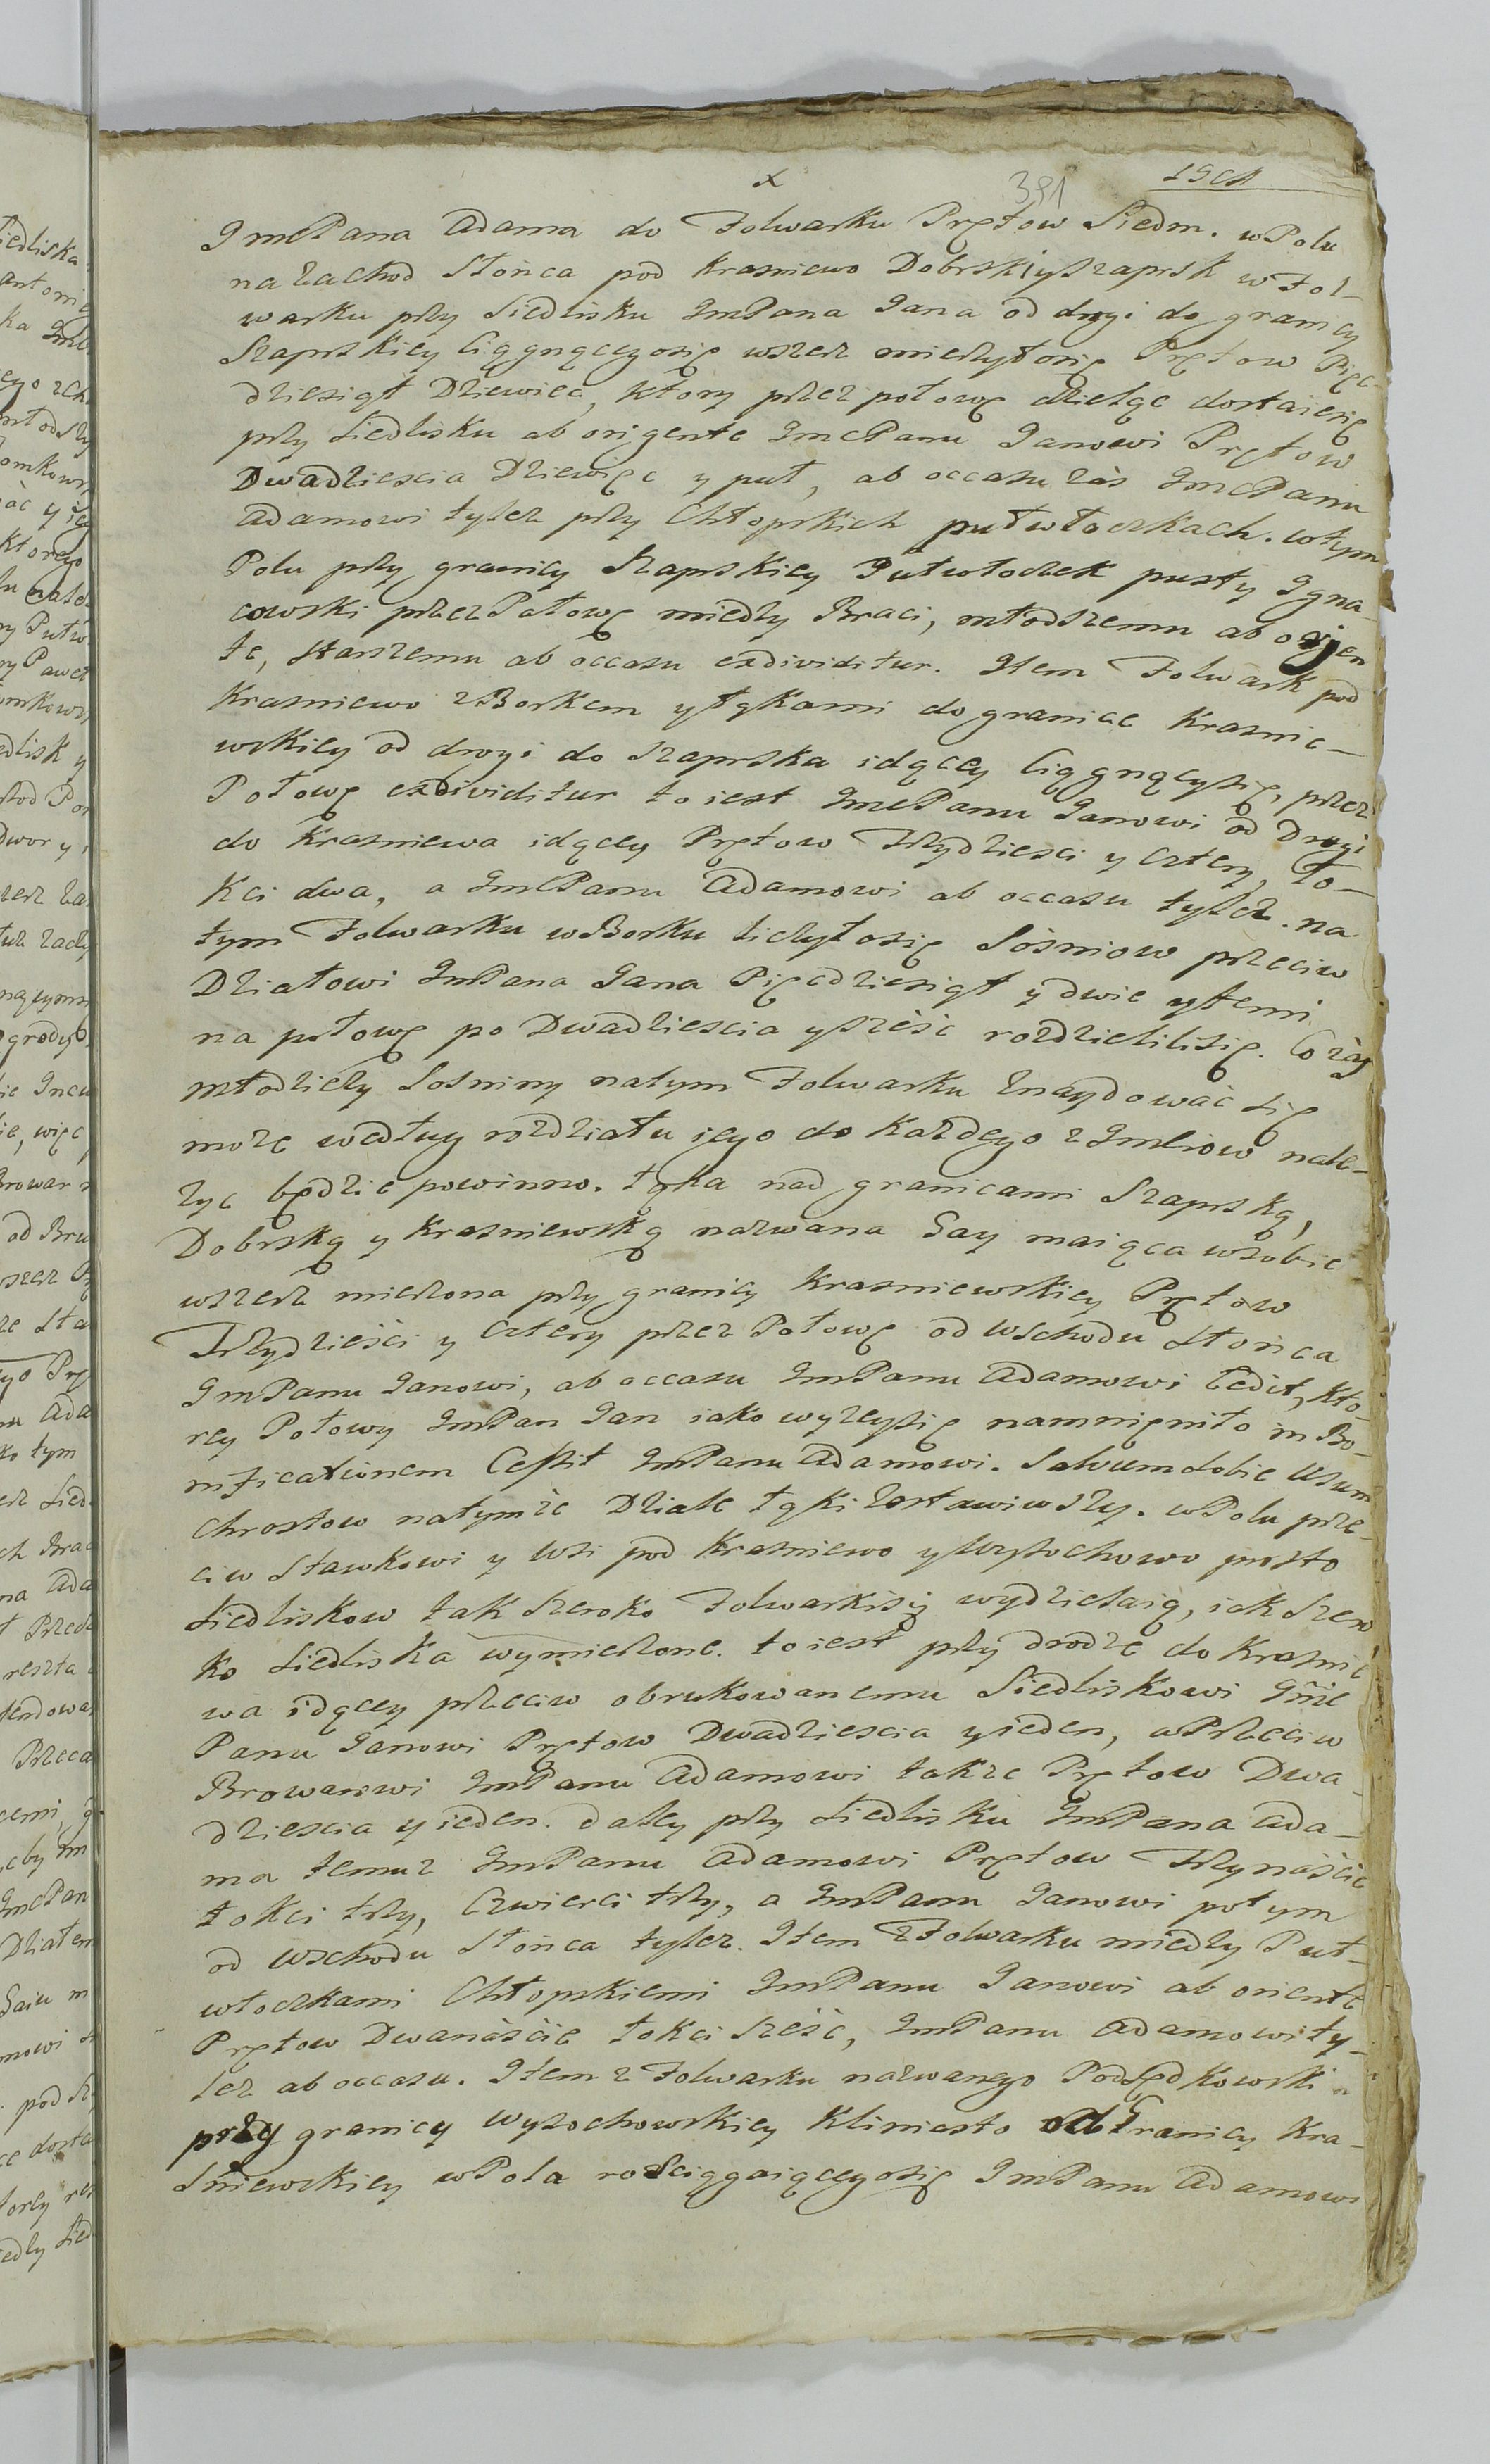 x
391
ImcPana Adama do Folwarku Prętow Siedm. w Polu
na Zachod Słońca pod Krasniewo Dobrski y Szaprsk w Fol-
warku przy Siedlisku ImPana Jana od drogi do granicy
Szaprskiey ciągnącegosię wszerz mierzyłosię Prętow Pięc-
dziesiąt Dziewiec, ktory przez połowę dzieląc dostaiesię
przy Siedlisku ab origente ImcPanu Janowi Prętow
Dwadziescia Dziewięc y puł, ab occasu zás ImcPanu
Adamowi tylez przy Chłopskich pułwłoczkach. w tym
Polu przy granicy Szaprskiey Pułwłoczek pusty Igna-
cowski przez Połowę miedzy Braci, młodszemu ab orjen
te, starszemu ab occasu exdividitur. Item Folwark pod
Krasniewo z Borkem y Łąkami do granice Krasnie-
wskiey od drogi do Szaprska idącey ciągnącysię, przez
Połowę exdividitur to iest ImcPanu Janowi od Drogi
do Krasniewa idącey Prętow Trzydziesci y cztery, Ło-
kci dwa, a ImcPanu Adamowi ab occasu tylez. na
tym Folwarku w Borku liczyłosię Sośniow przeciw
Działowi ImPana Jana Pięcdziesiąt y dwie y temi
na połowę po Dwadziescia y sześc rozdzielilisię. Co zaś
młodziezy Sosniny natym Folwarku znaydowac się
moze według rozdziału iego do Kazdego z Imciow nale-
zyc będzie powinno. Łąka nad granicami Szaprską,
Dobrską y Krasniewską nazwana Gay maiąca wsobie
wszerz mierzona przy granicy Krasniewskiey Prętow
Trzydzieści y cztery przez Połowę od Wschodu Słońca
ImPanu Janowi, ab occasu ImPanu Adamowi Cedit, Kto-
rey Połowy ImPan Jan iako wyzeysię namnięniło in Bo-
nificationem Cessit ImPanu Adamowi. Salvum sobie Usum
Chrostow natymże Dziale Łąki zostawiwszy. w Polu prze-
ciw Stawkowi y Wsi pod Krasniewo y Wysochowo prosto
Siedliskow tak szeroko Folwarkisię wydzielaią, iak szero
ko Siedliska wymierzone. to iest przy drodze do Krasnie
wa idącey przeciw obrukowanemu Siedliskowi Imc
Panu Janowi Prętow Dwadziescia y ieden, a Przeciw
Browarowi ImPanu Adamowi takze Prętow Dwa-
dziescia y ieden. daley przy Siedlisku ImPana Ada-
ma temuz ImPanu Adamowi Prętow Trzynáscie
Łokci trzy, czwierci trzy, a ImPanu Janowi potym
od Wschodu Słońca tylez. Item z Folwarku miedzy Puł-
włoczkami Chłopskiemi ImPanu Janowi ab oriente
Prętow Dwanáscie Łokci sześc, ImPanu Adamowi ty-
lez ab occasu. Item z Folwarku nazwanego Podsędkowski
przy granicy Wysochowskiey Kliniasto od Granicy Kra-
śniewskiey w Pola rosciągaiącegosię ImPanu Adamowi